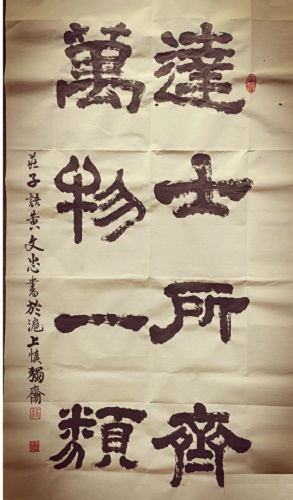 達士所齊
萬物一類
莊子語黄文忠書於滬上慎獨齋